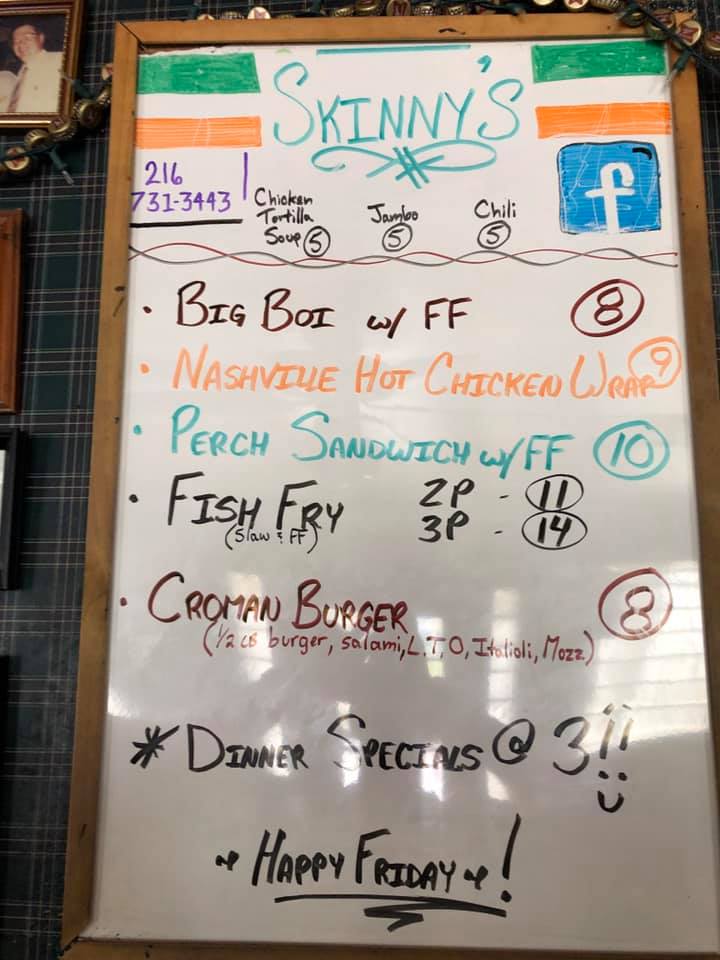 SKINNY'S
216
731-3443
Chicken
Tortilla
Soup 5
Jambo
5
Chili
5
f
• BIG BOI w/ FF 8
• NASHVILLE HOT CHICKEN WRAP 9
• PERCH SANDWICH w/ FF 10
• FISH FRY 2P - 11
(Slaw & FF) 3P - 14
• CROMAN BURGER 8
(1/2 LB burger, salami, L.T,O, Italioli, Mozz)
* DINNER SPECIALS @ 3!!
HAPPY FRIDAY!